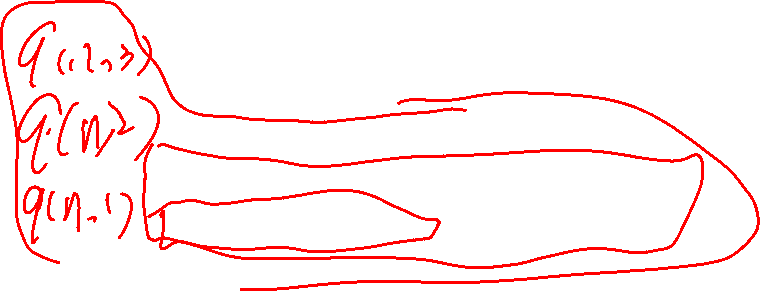 q(1,2,3)
q(n,2)
q(n,1)